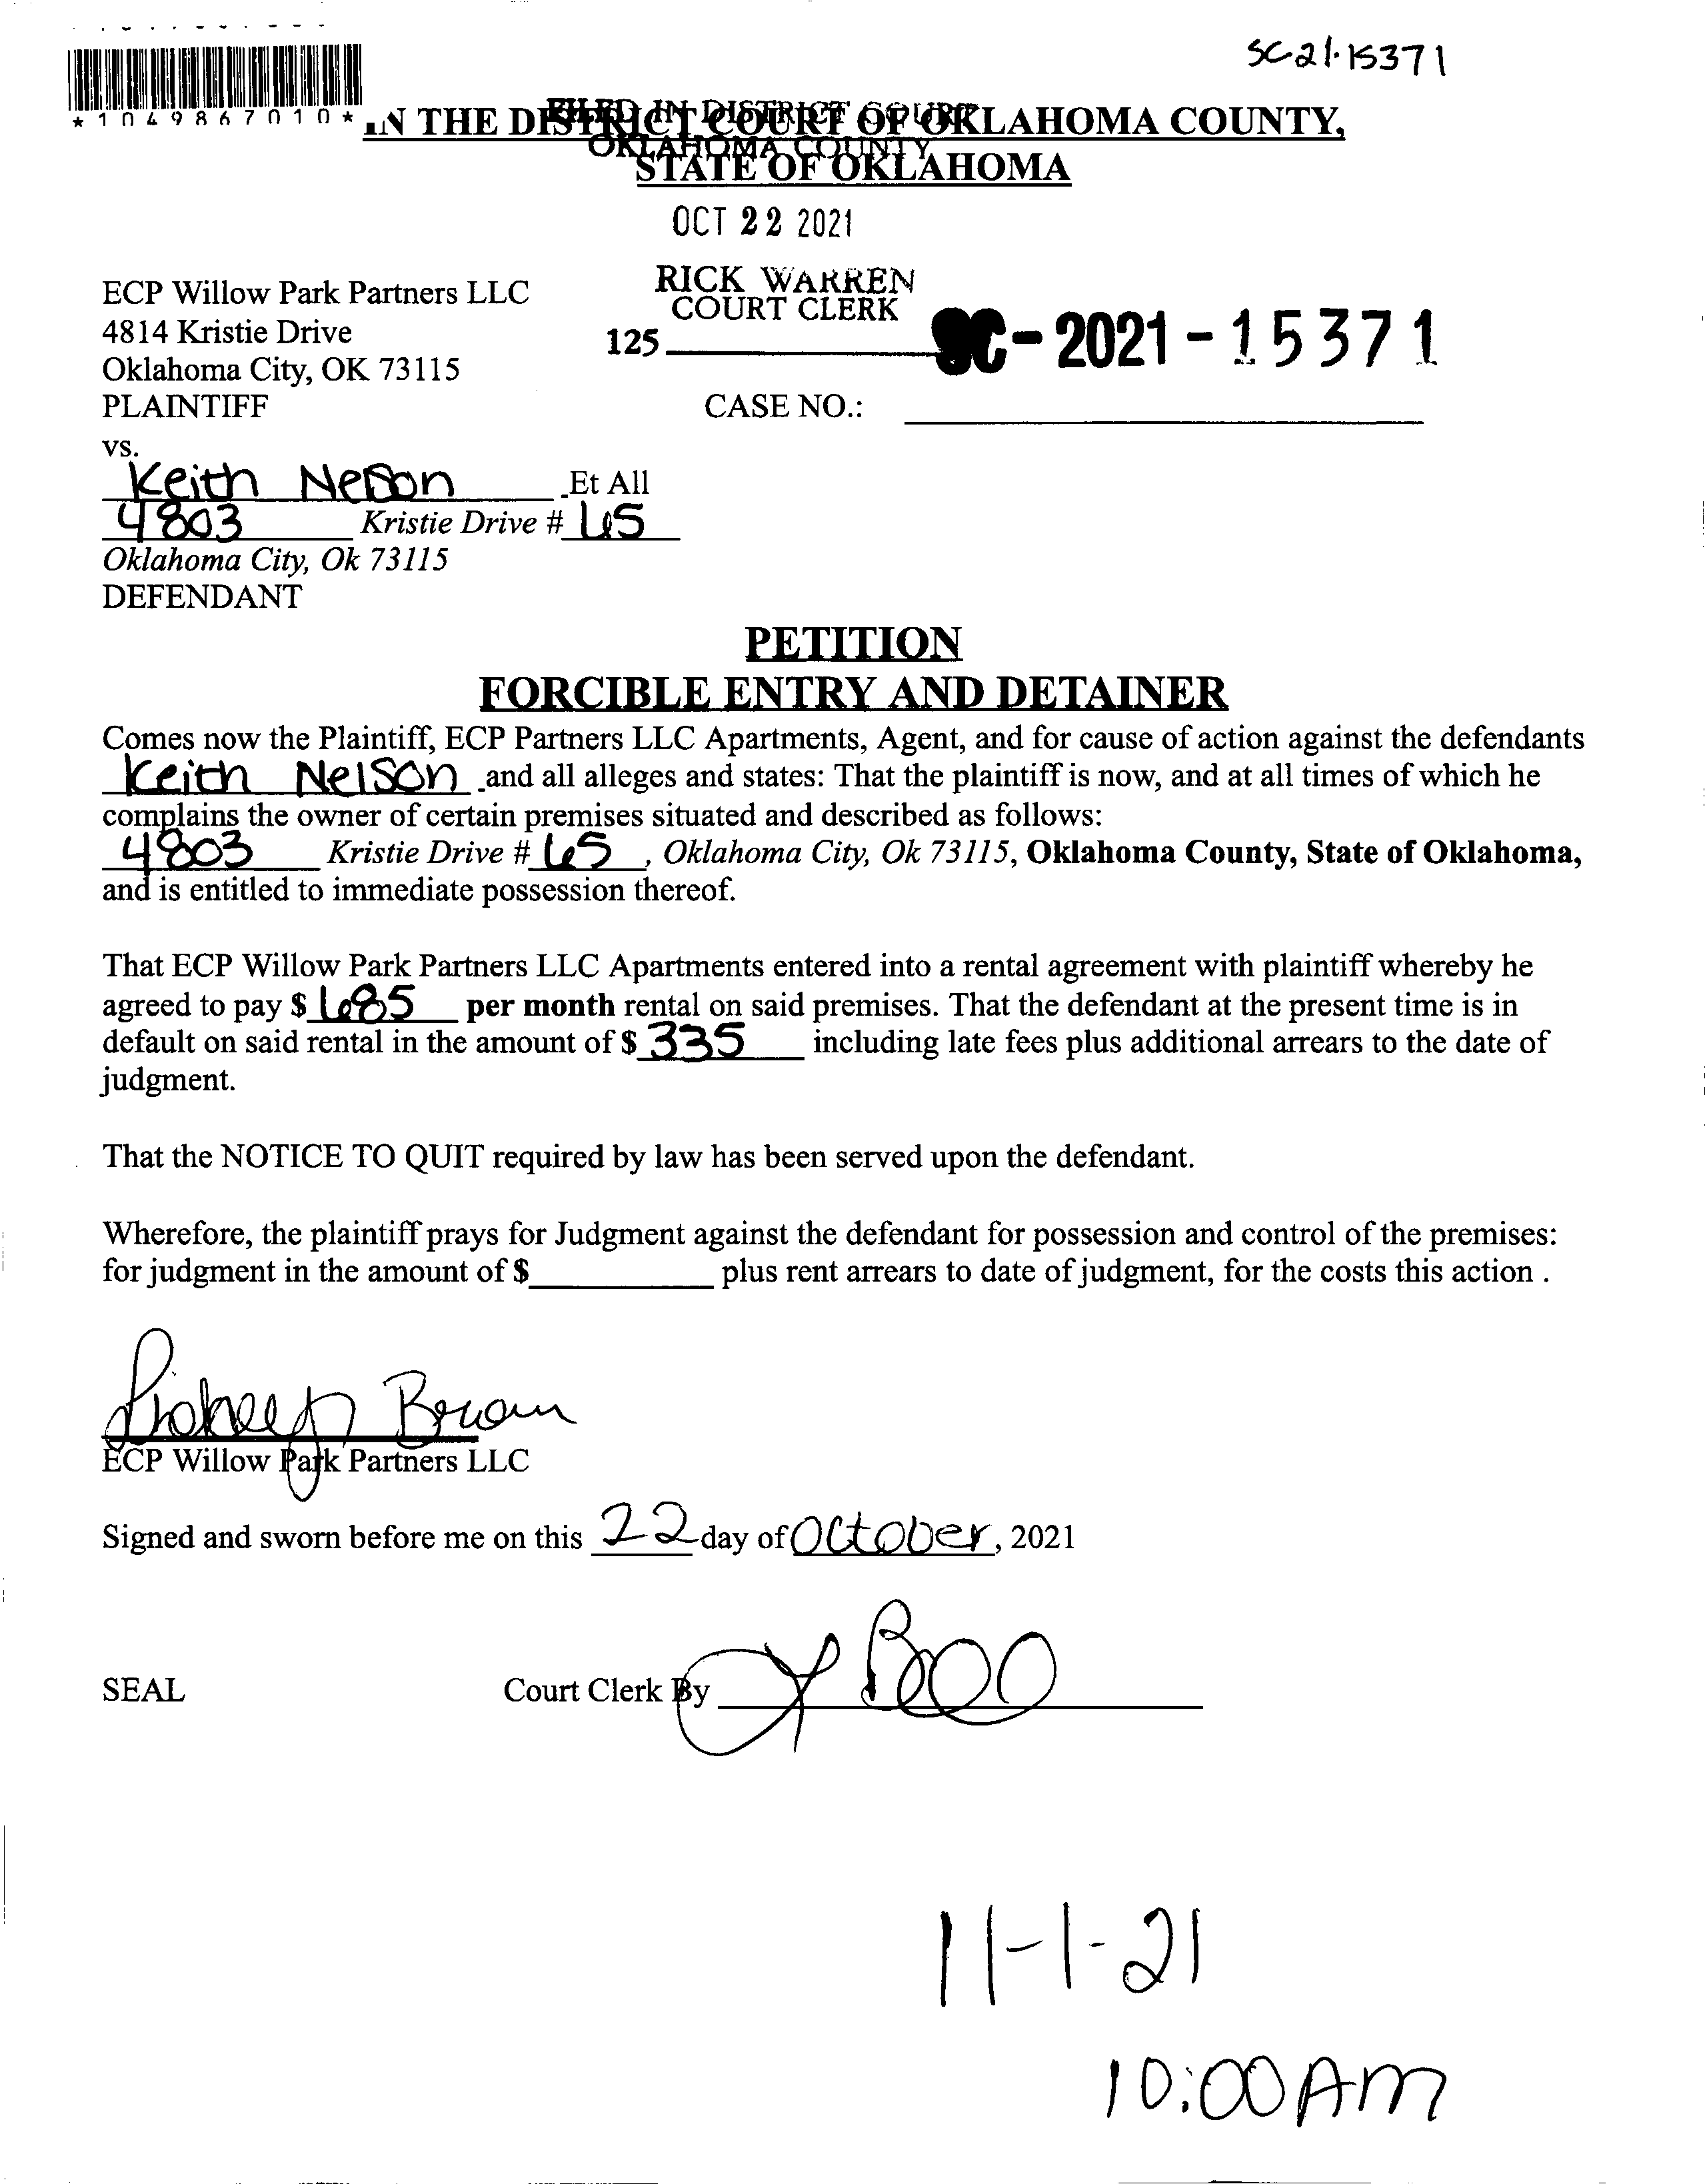 SC-21-15371
*1049867010*
IN THE DISTRICT COURT OF OKLAHOMA COUNTY,
STATE OF OKLAHOMA
FILED IN DISTRICT COURT
OKLAHOMA COUNTY
OCT 22 2021
RICK WARREN
COURT CLERK
125
SC-2021-15371
ECP Willow Park Partners LLC
4814 Kristie Drive
Oklahoma City, OK 73115
PLAINTIFF
CASE NO.:
vs.
Keith Nelson Et All
4803 Kristie Drive # 65
Oklahoma City, Ok 73115
DEFENDANT
PETITION
FORCIBLE ENTRY AND DETAINER
Comes now the Plaintiff, ECP Partners LLC Apartments, Agent, and for cause of action against the defendants
Keith Nelson and all alleges and states: That the plaintiff is now, and at all times of which he
complains the owner of certain premises situated and described as follows:
4803 Kristie Drive # 65, Oklahoma City, Ok 73115, Oklahoma County, State of Oklahoma,
and is entitled to immediate possession thereof.
That ECP Willow Park Partners LLC Apartments entered into a rental agreement with plaintiff whereby he
agreed to pay $ 685 per month rental on said premises. That the defendant at the present time is in
default on said rental in the amount of $ 335 including late fees plus additional arrears to the date of
judgment.
That the NOTICE TO QUIT required by law has been served upon the defendant.
Wherefore, the plaintiff prays for Judgment against the defendant for possession and control of the premises:
for judgment in the amount of $ plus rent arrears to date of judgment, for the costs this action .
Brown
ECP Willow Park Partners LLC
Signed and sworn before me on this 22 day of October, 2021
SEAL Court Clerk By
11-1-21
10:00 AM